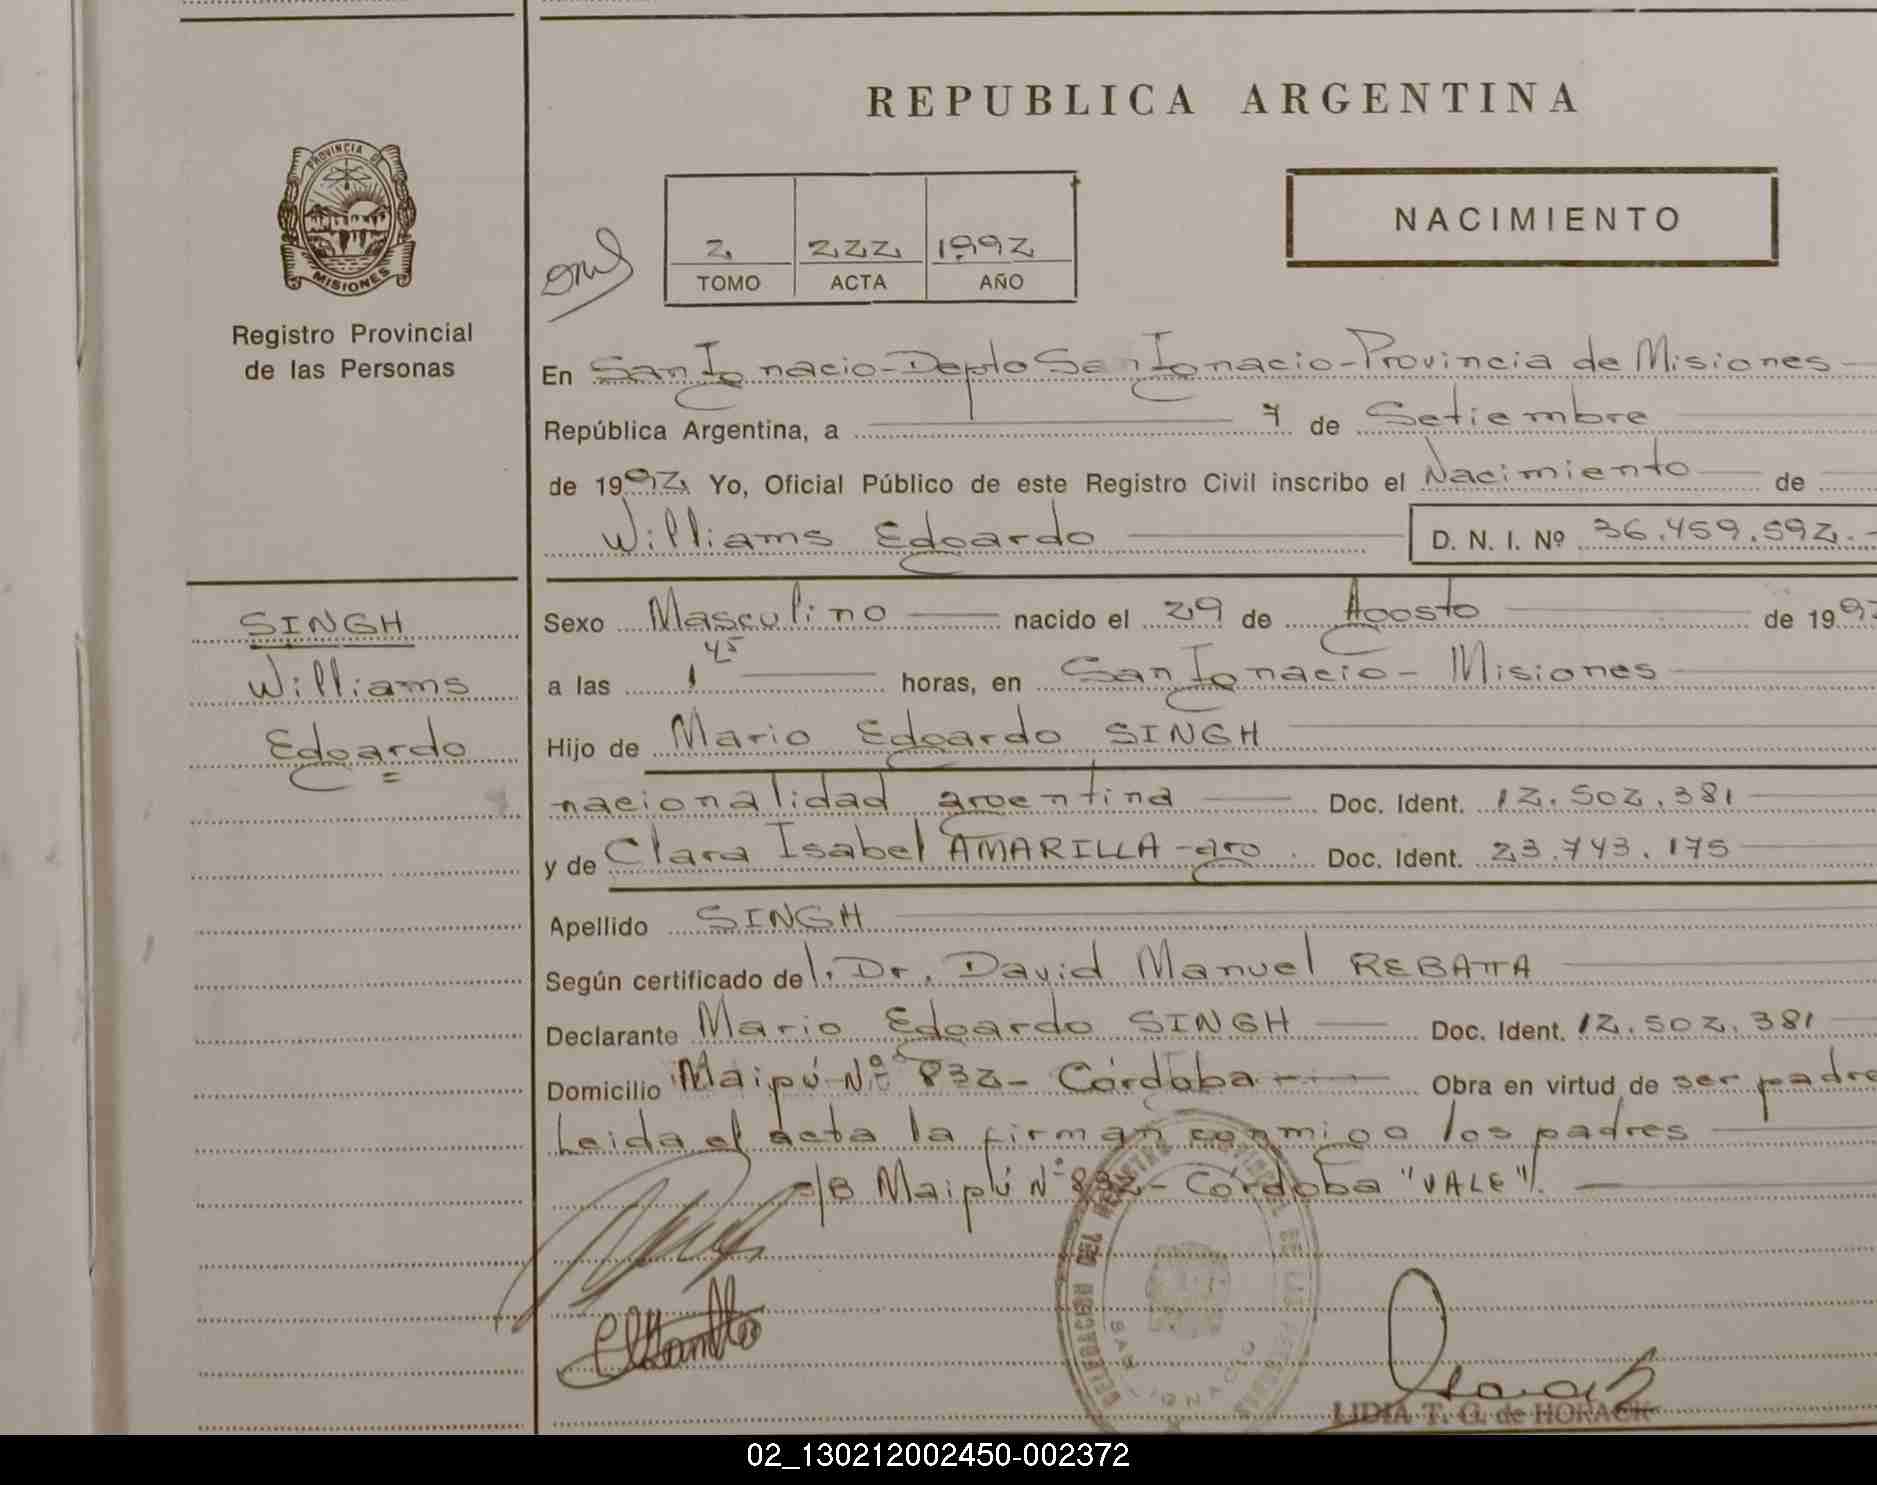 REPUBLICA ARGENTINA
PROVINCIA DE
MISIONES
Registro Provincial
de las Personas
NACIMIENTO
2 222 1992
TOMO ACTA AÑO
En San Ignacio - Depto San Ignacio - Provincia de Misiones
República Argentina, a 7 de Setiembre
de 1992 Yo, Oficial Público de este Registro Civil inscribo el Nacimiento de
Williams Edgardo D. N. I. Nº 36.459.592.-
SINGH
Williams
Edgardo
Sexo Masculino nacido el 29 de Agosto de 199
a las 1 45 horas, en San Ignacio - Misiones
Hijo de Mario Edgardo SINGH
nacionalidad argentina Doc. Ident. 12.502.381
y de Clara Isabel AMARILLA - arg. Doc. Ident. 23.743.175
Apellido SINGH
Según certificado del Dr. David Manuel REBATTA
Declarante Mario Edgardo SINGH Doc. Ident. 12.502.381
Domicilio Maipú Nº 832 - Córdoba Obra en virtud de ser padre
Leida el acta la firman conmigo los padres
e/B Maipú Nº 832 - Córdoba "VALE".
DELEGACION DEL REGISTRO PROVINCIAL DE LAS PERSONAS
SAN IGNACIO
LIDIA T. G. de HORACK
02_130212002450-002372